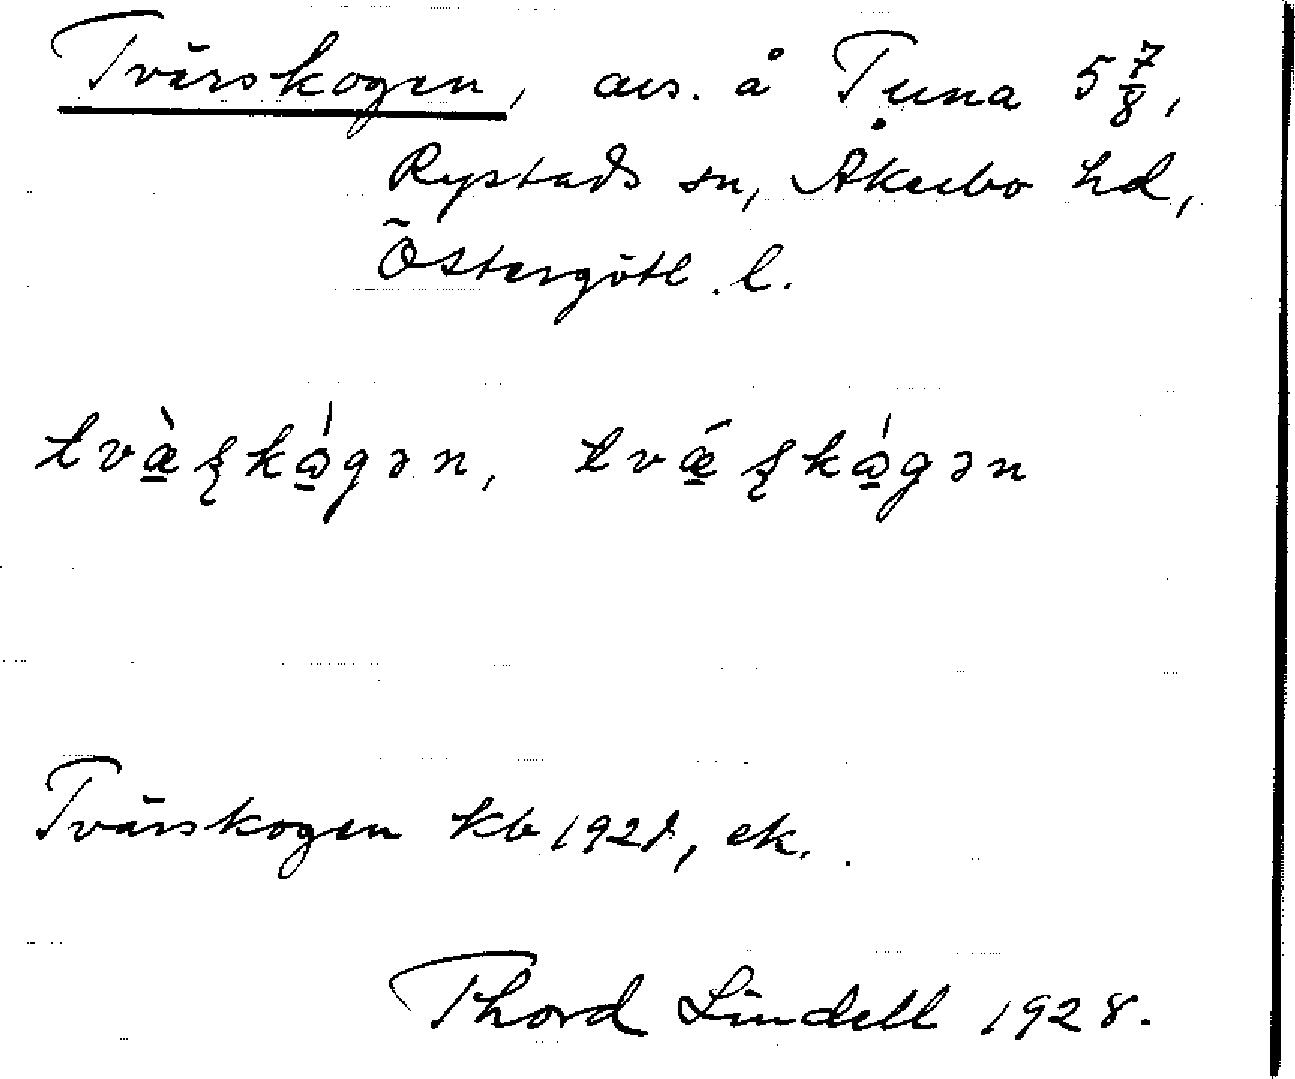 Tvärskogen, avs. å Tuna 5 7/8,
Rystads sn, Åkerbo hd,
Östergötl. l.
tvæ̀ʂkǫ́gən, tvǽʂkǫ́gən
Tvärskogen kb 1928, ek.
Thord Lindell 1928.